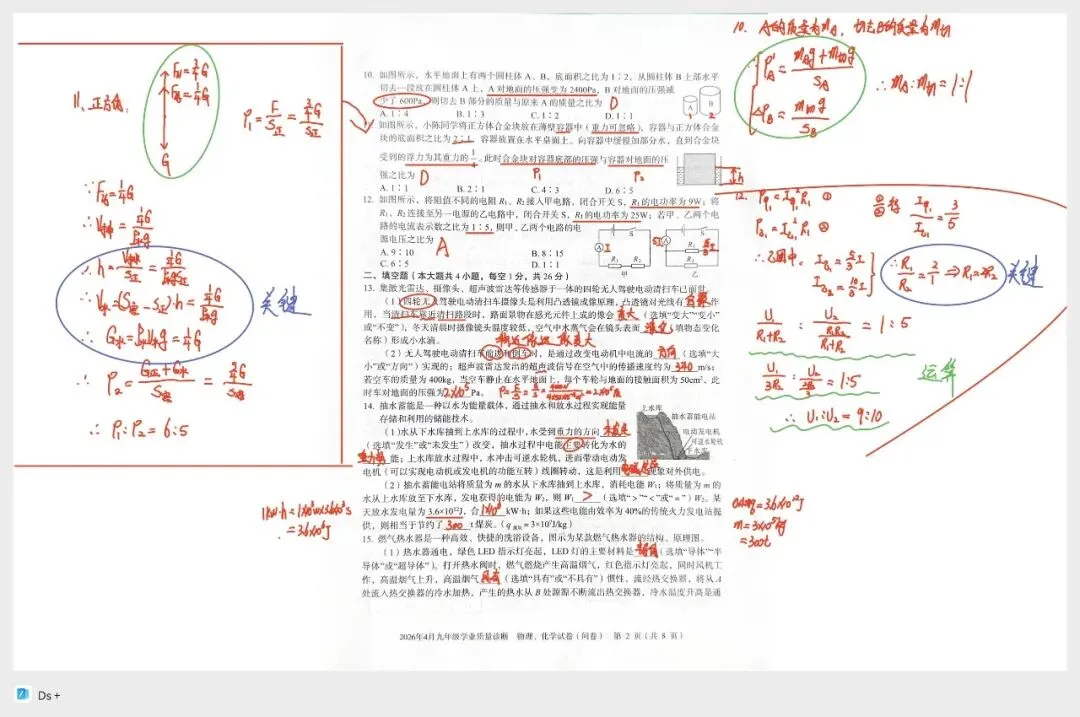 10. A的质量为mA, 切去B的质量为m切
P'A = (mAg+m切g)/SA
△PB = m切g/SB
∴ mA:m切=1:1
11、正方体:
FN=3/4G
F浮=1/4G
G
P1=F/S正=3/4G/S正
∵F浮=1/4G
∴h=V排/S正
∴V水=(S容-S正)·h=
∴G水=ρ水V水g=1/4G
关键
∴P2=(G正+G水)/S容=
∴P1:P2=6:5
10. 如图所示，水平地面上有两个圆柱体 A、B，底面积之比为 1∶2，从圆柱体 B 上部水平
切去一段放在圆柱体 A 上，A 对地面的压强变为 2400Pa，B 对地面的压强减
少了 600Pa，则切去 B 部分的质量与原来 A 的质量之比为 D
A. 1∶4 B. 1∶3 C. 1∶2 D. 1∶1
A
B
1
2
如图所示，小陈同学将正方体合金块放在薄壁容器中（重力可忽略），容器与正方体合金
块的底面积之比为 2∶1，容器放置在水平桌面上。向容器中缓慢加部分水，直到合金块
受到的浮力为其重力的1/4。此时合金块对容器底部的压强与容器对地面的压
强之比为 D
P1
P2
h
A. 1∶1 B. 2∶1 C. 4∶3 D. 6∶5
12. 如图所示，将阻值不同的电阻 R₁、R₂ 接入甲电路，闭合开关 S，R₁ 的电功率为 9W；将
R₁、R₂ 连接至另一电源的乙电路中，闭合开关 S，R₁ 的电功率为 25W；若甲、乙两个电
路的电流表示数之比为 1∶5，则甲、乙两个电路的电
源电压之比为 A
A. 9∶10 B. 8∶15
C. 6∶5 D. 1∶1
甲
乙
12. P甲1=I甲²R1 ①
P乙1=I乙1²R1 ②
①/②得 I甲/I乙1=3/5
∴乙图中, I乙1=5/3I
I乙2=10/3I
∴R1/R2=2/1⇒R1=2R2
关键
U1/(R1+R2) : U2/(R1R2/(R1+R2)) =1:5
U1/3R2 : U2/(2R2/3) =1:5
运算
∴U1:U2=9:10
二、填空题（本大题共 4 小题，每空 1 分，共 26 分）
13. 集激光雷达、摄像头、超声波雷达等传感器于一体的四轮无人驾驶电动清扫车已面世。
（1）四轮无人驾驶电动清扫车摄像头是利用凸透镜成像原理，凸透镜对光线有 会聚
作用，当清扫车靠近清扫路段时，路面景物在感光元件上成的像会 变大（选填“变大”“变小”
或“不变”），冬天清晨时摄像镜头温度较低、空气中水蒸气会在镜头表面 液化（填物态变化
名称）形成小水滴。
物近像远像变大
（2）无人驾驶电动清扫车前进和倒车时，是通过改变电动机中电流的 方向（选填“大
小”或“方向”）实现的；超声波雷达发出的超声波信号在空气中的传播速度约为 340 m/s；
若空车的质量为 400kg，当空车静止在水平地面上，每个车轮与地面的接触面积为 50cm²，此
时车对地面的压强为 2×10⁵ Pa。
14. 抽水蓄能是一种以水为能量载体，通过抽水和放水过程实现能量
存储和利用的储能技术。
（1）水从下水库抽到上水库的过程中，水受到重力的方向 未发生
（选填“发生”或“未发生”）改变，抽水过程中电能主要转化为水的
重力势能；上水库放水过程中，水冲击可逆水轮机，进而带动电动发
电机（可以实现电动机或发电机的功能互转）线圈转动，这是利用 电磁感应 现象对外供电。
上水库
抽水蓄能电站
电动发电机
可逆水轮机
下水库
（2）抽水蓄能电站将质量为 m 的水从下水库抽到上水库，消耗电能 W₁；将质量为 m 的
水从上水库放至下水库，发电获得的电能为 W₂，则 W₁ > （选填“>”“<”或“=”）W₂。某
天放水发电量为 3.6×10¹²J，合 1×10⁶ kW·h；如果这些电能由效率为 40%的传统火力发电站提
供，则相当于节约了 300 t 煤炭。（q煤炭=3×10⁷J/kg）
1kW·h=1×10³W×3.6×10³s
=3.6×10⁶J
0.4mq=3.6×10¹²J
m=3×10⁵kg
=300t
15. 燃气热水器是一种高效、快捷的洗浴设备，图示为某款燃气热水器的结构、原理图。
（1）热水器通电，绿色 LED 指示灯亮起，LED 灯的主要材料是 半导体（选填“导体”“半导
体”或“超导体”）。打开热水阀时，燃气燃烧产生高温烟气，红色指示灯亮起，同时风机工
作，高温烟气上升，高温烟气 具有（选填“具有”或“不具有”）惯性，流经热交换器，将从 A
处流入热交换器的冷水加热，产生的热水从 B 处源源不断流出热交换器，冷水温度升高是通
2026年4月九年级学业质量诊断 物理、化学试卷（问卷） 第 2 页（共 8 页）
Ds +